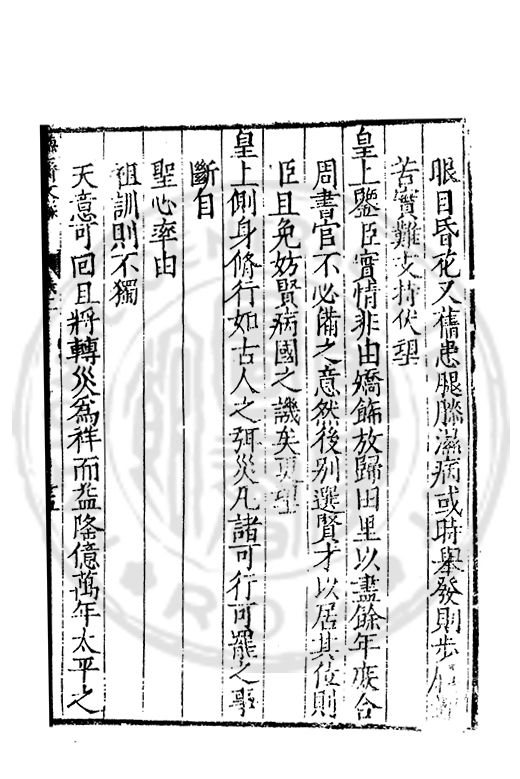 眼目昏花又舊患腿膝濕病或時舉發則步
苦實難支持伏望
皇上鑒臣實情非由矯飾放歸田里以盡餘年庶合
周書官不必備之意然後別選賢才以居其位則
臣且免妨賢病國之譏矣更望
皇上側身脩行如古人之弭災凡諸可行可罷之事
斷自
聖心率由
祖訓則不獨
天意可回且將轉災為祥而益隆億萬年太平之